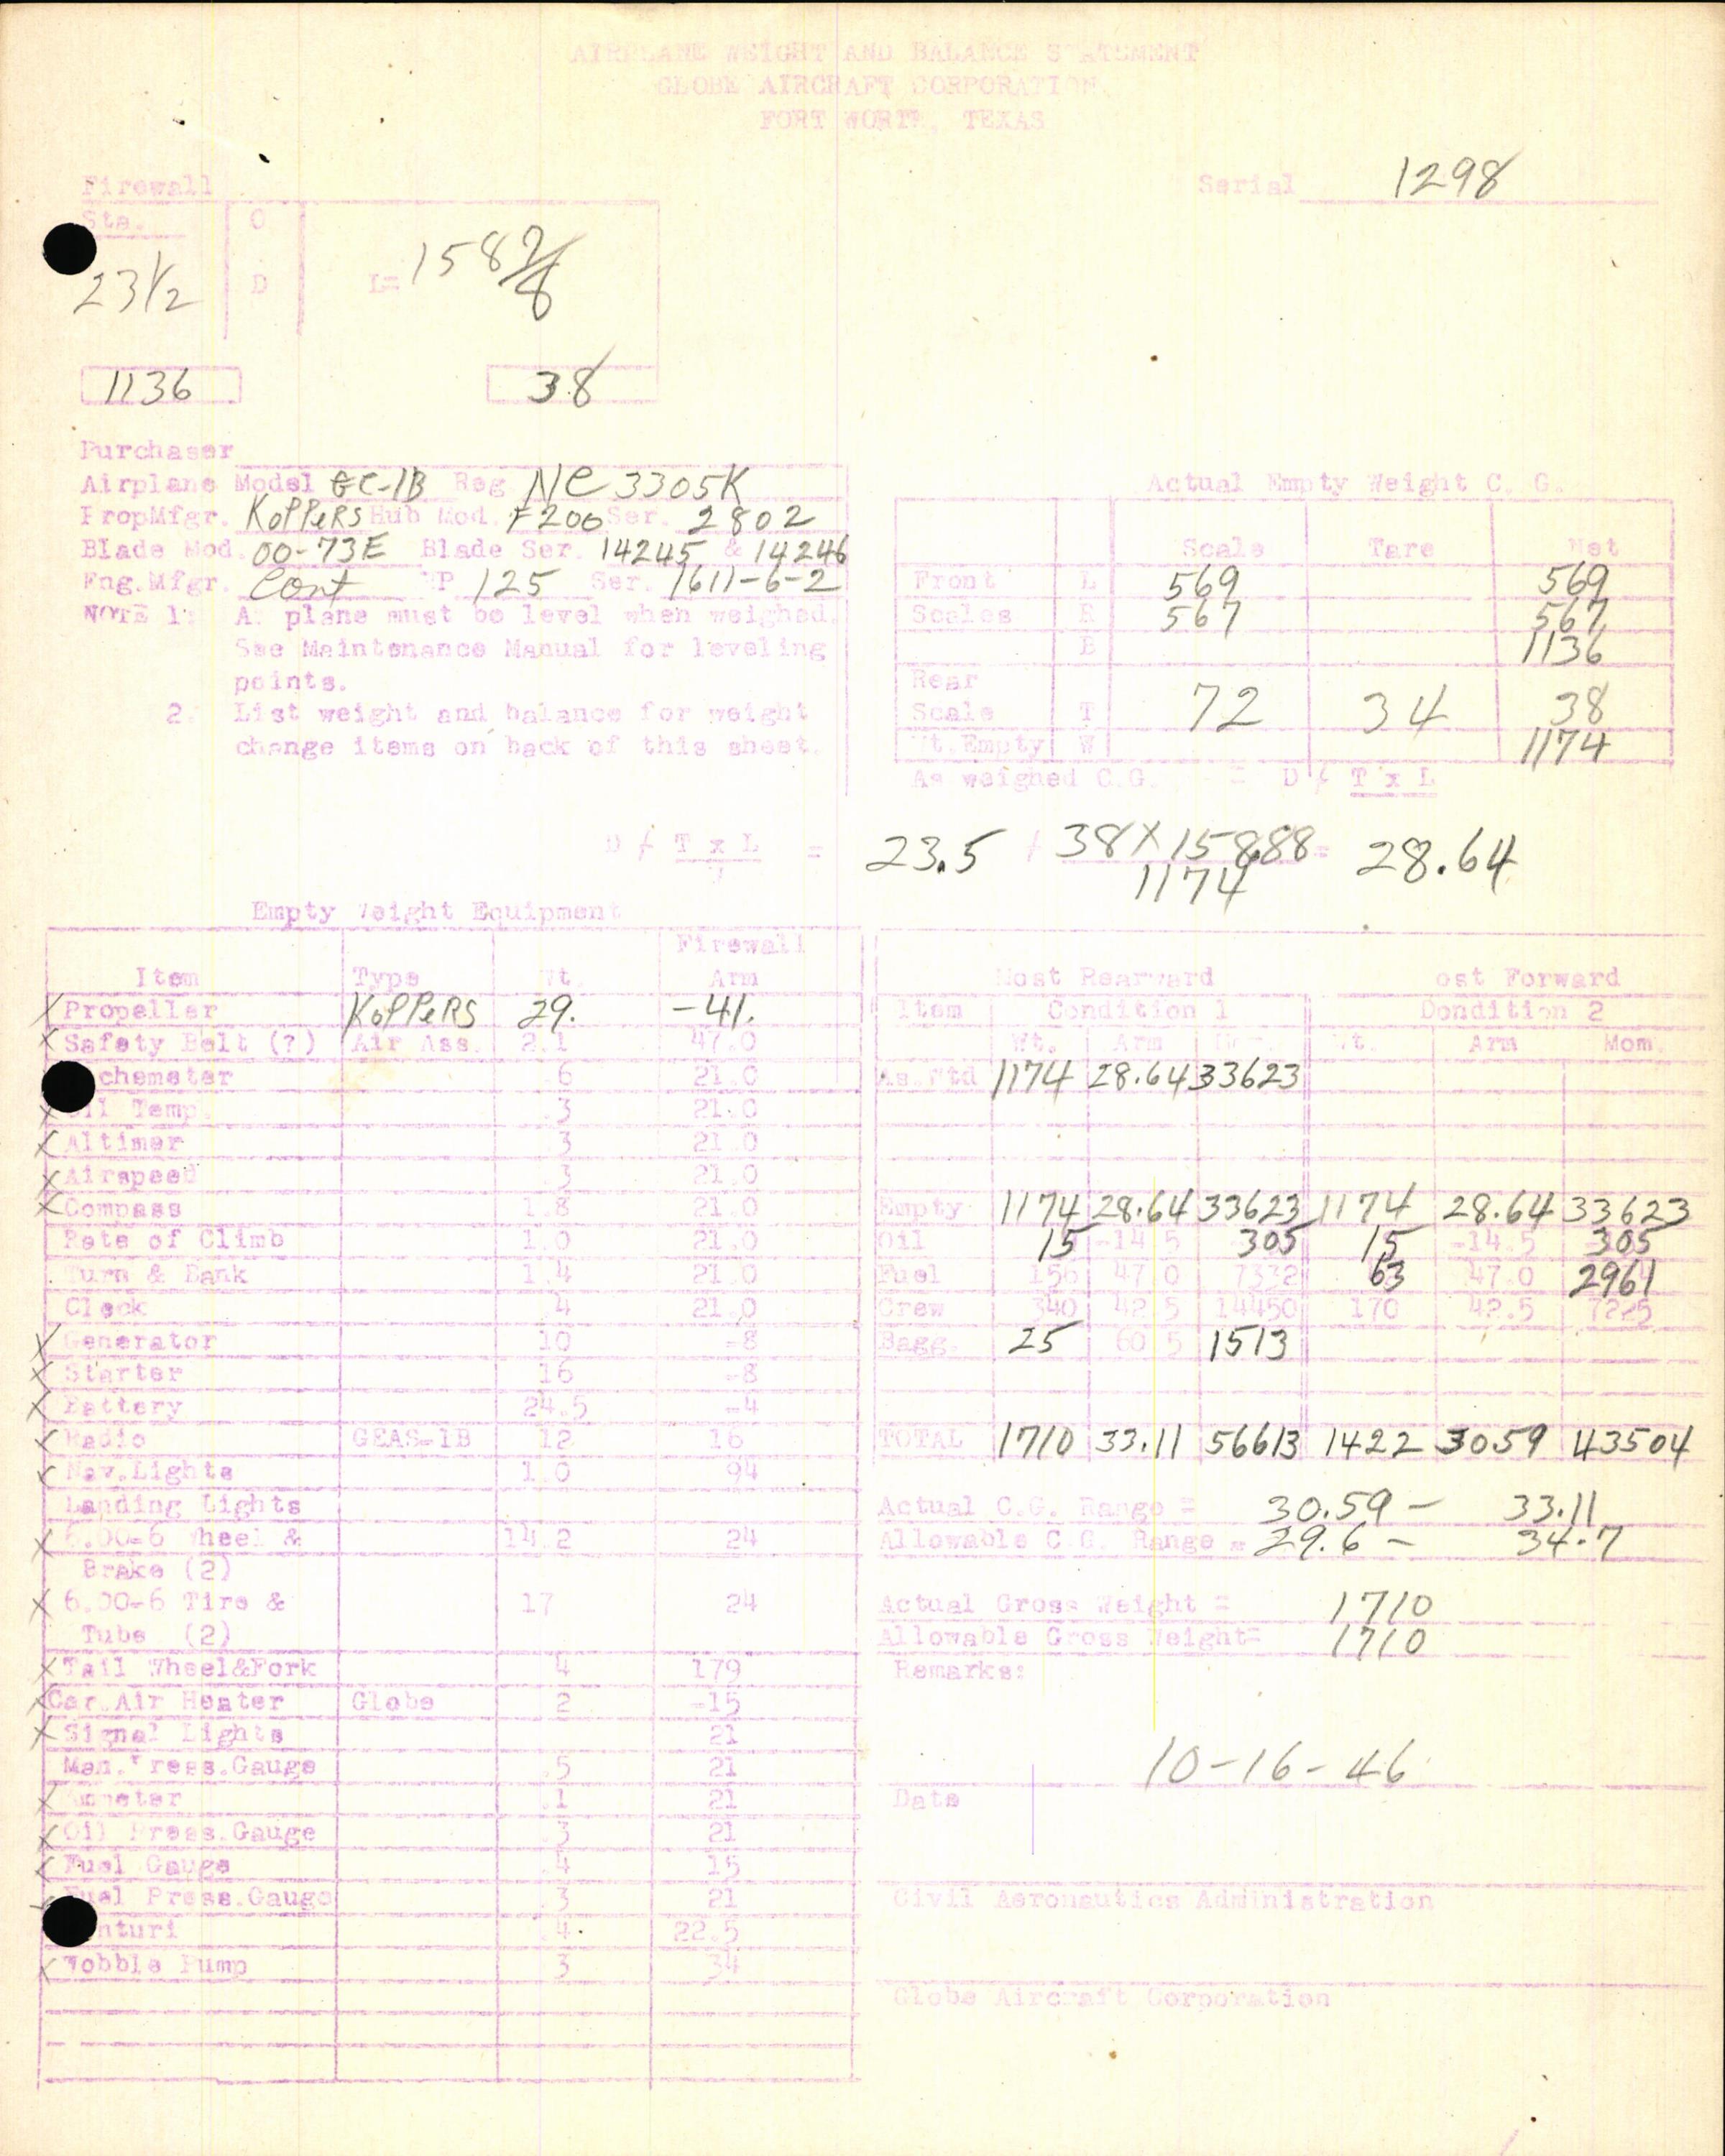 AIRPLANE WEIGHT AND BALANCE STATEMENT
GLOBE AIRCRAFT CORPORATION
FORT WORTH, TEXAS
Serial 1298
Firewall
Sta. O
23 1/2 D L= 158 7/8
1136 38
Purchaser
Airplane Model GC-1B Reg NC 3305K
PropMfgr. KOPPERS Hub Mod. F200 Ser. 2802
Blade Mod. 00-73E Blade Ser. 14245 & 14246
Eng.Mfgr. Cont HP 125 Ser. 1611-6-2
NOTE 1: A plane must be level when weighed.
See Maintenance Manual for leveling
points.
2. List weight and balance for weight
change items on back of this sheet.
Actual Empty Weight C. G.
Scale Tare Net
Front L 569 569
Scales R 567 567
B 1136
Rear
Scale T 72 34 38
Wt.Empty W 1174
As weighed C.G. = D / T x L
D / T x L = 23.5 / 38 X 158.88 = 28.64
1174
Empty Weight Equipment
Firewall
Item Type Wt. Arm
X Propeller KOPPERS 29. -41.
X Safety Belt (?) Air Ass. 2.1 47.0
chometer .6 21.0
X Oil Temp. .3 21.0
X Altimer .3 21.0
X Airspeed .3 21.0
X Compass 1.8 21.0
Rate of Climb 1.0 21.0
Turn & Bank 1.4 21.0
Clock .4 21.0
X Generator 10 -8
X Starter 16 -8
X Battery 24.5 -4
X Radio GEAS-1B 12 16
X Nav.Lights 1.0 94
Landing Lights
X 6.00-6 Wheel & 14.2 24
Brake (2)
X 6.00-6 Tire & 17 24
Tube (2)
X Tail Wheel&Fork 4 179
X Car.Air Heater Globe 2 -15
X Signal Lights 21
Man.Press.Gauge .5 21
X Ammeter .1 21
X Oil Press.Gauge .3 21
X Fuel Gauge .4 15
X Fuel Press.Gauge .3 21
nturi .4 22.5
X Wobble Pump 3 34
Most Rearward ost Forward
Item Condition 1 Condition 2
Wt. Arm Mom. Wt. Arm Mom.
As.Wtd 1174 28.64 33623
Empty 1174 28.64 33623 1174 28.64 33623
Oil 15 -14.5 305 15 -14.5 305
Fuel 156 47.0 7332 63 47.0 2961
Crew 340 42.5 14450 170 42.5 7225
Bagg. 25 60.5 1513
TOTAL 1710 33.11 56613 1422 3059 43504
Actual C.G. Range = 30.59 - 33.11
Allowable C.G. Range = 29.6 - 34.7
Actual Gross Weight = 1710
Allowable Gross Weight= 1710
Remarks:
10-16-46
Date
Civil Aeronautics Administration
Globe Aircraft Corporation